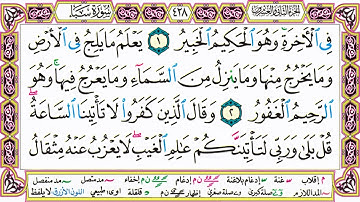 سُورَةُ سَبَإٍ ٤٢٨
فِي الْآخِرَةِ وَهُوَ الْحَكِيمُ الْخَبِيرُ ١ يَعْلَمُ مَا يَلِجُ فِي الْأَرْضِ
وَمَا يَخْرُجُ مِنْهَا وَمَا يَنزِلُ مِنَ السَّمَاءِ وَمَا يَعْرُجُ فِيهَا وَهُوَ
الرَّحِيمُ الْغَفُورُ ٢ وَقَالَ الَّذِينَ كَفَرُوا لَا تَأْتِينَا السَّاعَةُ
قُلْ بَلَىٰ وَرَبِّي لَتَأْتِيَنَّكُمْ عَالِمِ الْغَيْبِ لَا يَعْزُبُ عَنْهُ مِثْقَالُ